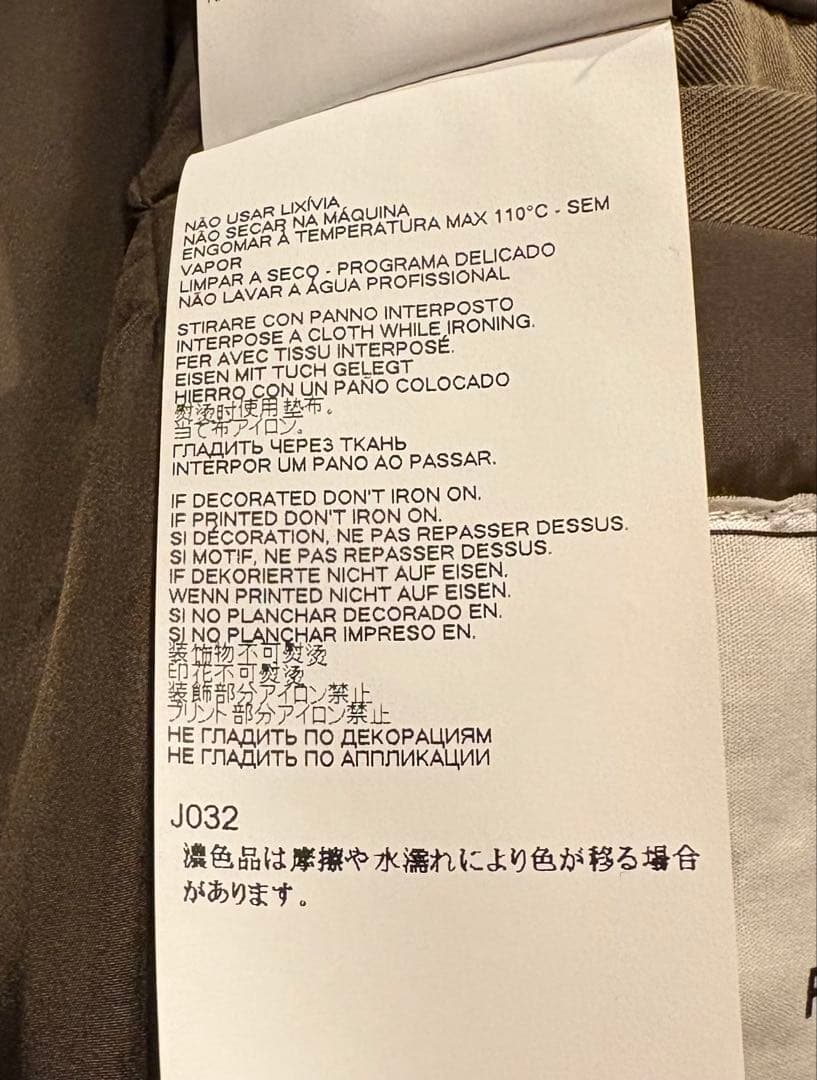 NÃO USAR LIXÍVIA
NÃO SECAR NA MÁQUINA
ENGOMAR À TEMPERATURA MAX 110°C - SEM
VAPOR
LIMPAR A SECO - PROGRAMA DELICADO
NÃO LAVAR A ÁGUA PROFISSIONAL
STIRARE CON PANNO INTERPOSTO
INTERPOSE A CLOTH WHILE IRONING.
FER AVEC TISSU INTERPOSÉ.
EISEN MIT TUCH GELEGT
HIERRO CON UN PAÑO COLOCADO
熨烫时使用垫布。
当て布アイロン。
ГЛАДИТЬ ЧЕРЕЗ ТКАНЬ
INTERPOR UM PANO AO PASSAR.
IF DECORATED DON'T IRON ON.
IF PRINTED DON'T IRON ON.
SI DÉCORATION, NE PAS REPASSER DESSUS.
SI MOTIF, NE PAS REPASSER DESSUS.
IF DEKORIERTE NICHT AUF EISEN.
WENN PRINTED NICHT AUF EISEN.
SI NO PLANCHAR DECORADO EN.
SI NO PLANCHAR IMPRESO EN.
装饰物不可熨烫
印花不可熨烫
装飾部分アイロン禁止
プリント部分アイロン禁止
НЕ ГЛАДИТЬ ПО ДЕКОРАЦИЯМ
НЕ ГЛАДИТЬ ПО АППЛИКАЦИИ
J032
濃色品は摩擦や水濡れにより色が移る場合
があります。